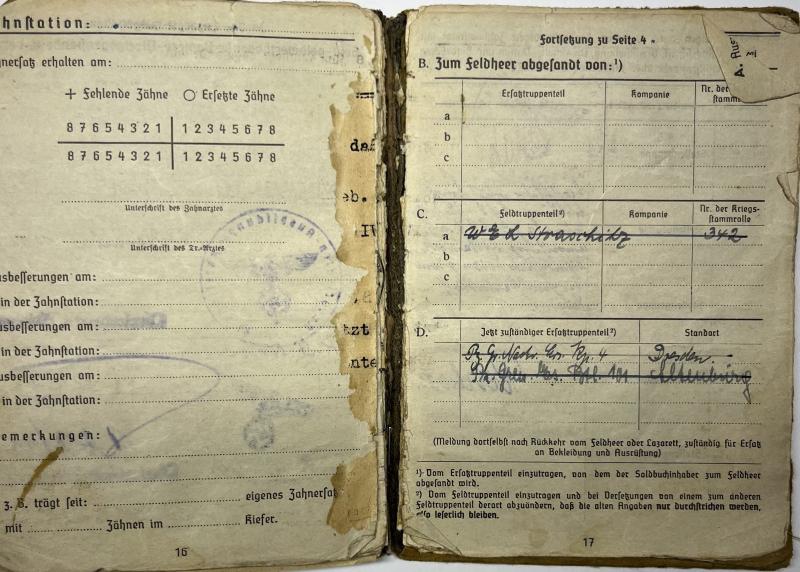 hnstation:
nersatz erhalten am:
+ Fehlende Zähne ○ Ersetzte Zähne
8 7 6 5 4 3 2 1 | 1 2 3 4 5 6 7 8
8 7 6 5 4 3 2 1 | 1 2 3 4 5 6 7 8
Unterschrift des Zahnarztes
Unterschrift des Tr.-Arztes
usbesserungen am:
in der Zahnstation:
usbesserungen am:
in der Zahnstation:
usbesserungen am:
in der Zahnstation:
emerkungen:
z. B. trägt seit: eigenes Zahnersatz
mit Zähnen im Kiefer.
16
da
eb.
IV
tzt
nte
Fortsetzung zu Seite 4
B. Zum Feldheer abgesandt von:¹)
Ersatztruppenteil Kompanie Nr. der
stamm
a
b
c
A. Aus
C. Feldtruppenteil²) Kompanie Nr. der Kriegs-
stammrolle
a W E L Straschitz 342
b
c
D. Jetzt zuständiger Ersatztruppenteil²) Standort
Pz. Gr. Nachr. Ers. Kp. 4 Dresden
Pz. Gren. Ers. Btl. 101 Altenburg
(Meldung dortselbst nach Rückkehr vom Feldheer oder Lazarett, zuständig für Ersatz
an Bekleidung und Ausrüstung)
¹) Vom Ersatztruppenteil einzutragen, von dem der Soldbuchinhaber zum Feldheer
abgesandt wird.
²) Vom Feldtruppenteil einzutragen und bei Versetzungen von einem zum anderen
Feldtruppenteil derart abzuändern, daß die alten Angaben nur durchstrichen werden,
also leserlich bleiben.
17